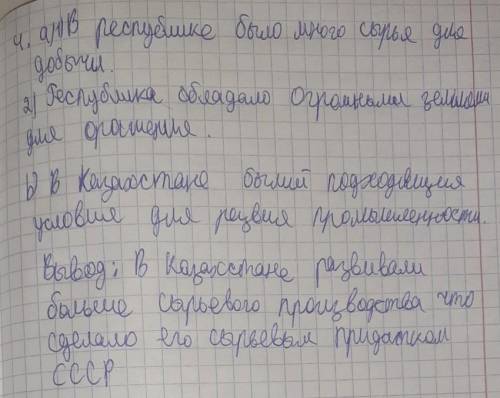 4. а) 1) В республике было много сырья для
добычи.
2) Республика обладало огромными землями
для орошения.
b) В Казахстане былий подходящия
условия для развия промышленности.
Вывод: В Казахстане развивали
больше сырьевого производства что
сделало его сырьевым придатком
СССР